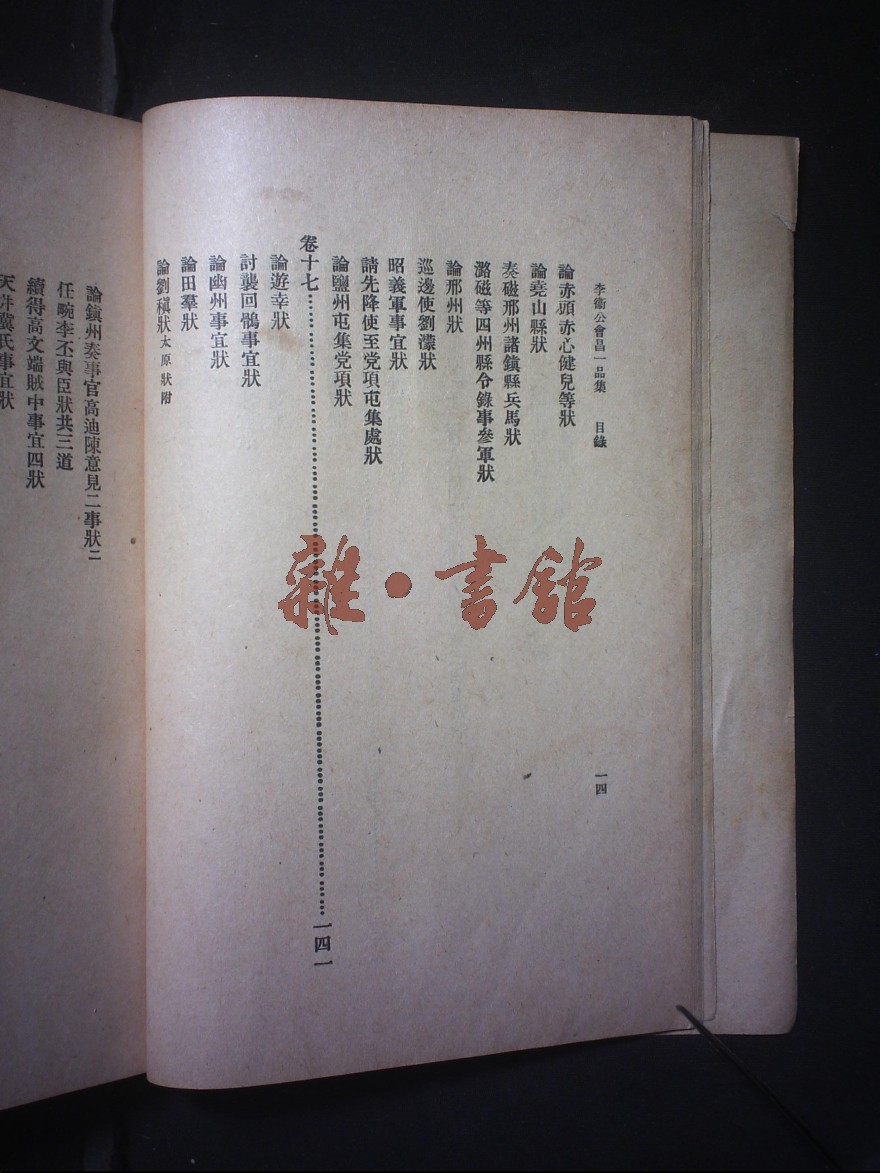 李衞公會昌一品集　目錄　一四
論赤頭赤心健兒等狀
論堯山縣狀
奏磁邢州諸鎮縣兵馬狀
潞磁等四州縣令錄事參軍狀
論邢州狀
巡邊使劉濛狀
昭義軍事宜狀
請先降使至党項屯集處狀
論鹽州屯集党項狀
卷十七……………………一四一
論遊幸狀
討襲回鶻事宜狀
論幽州事宜狀
論田羣狀
論劉稹狀太原狀附
論鎮州奏事官高迪陳意見二事狀二
任畹李丕與臣狀共三道
續得高文端賊中事宜四狀
天井冀氏事宜狀
雜·書館